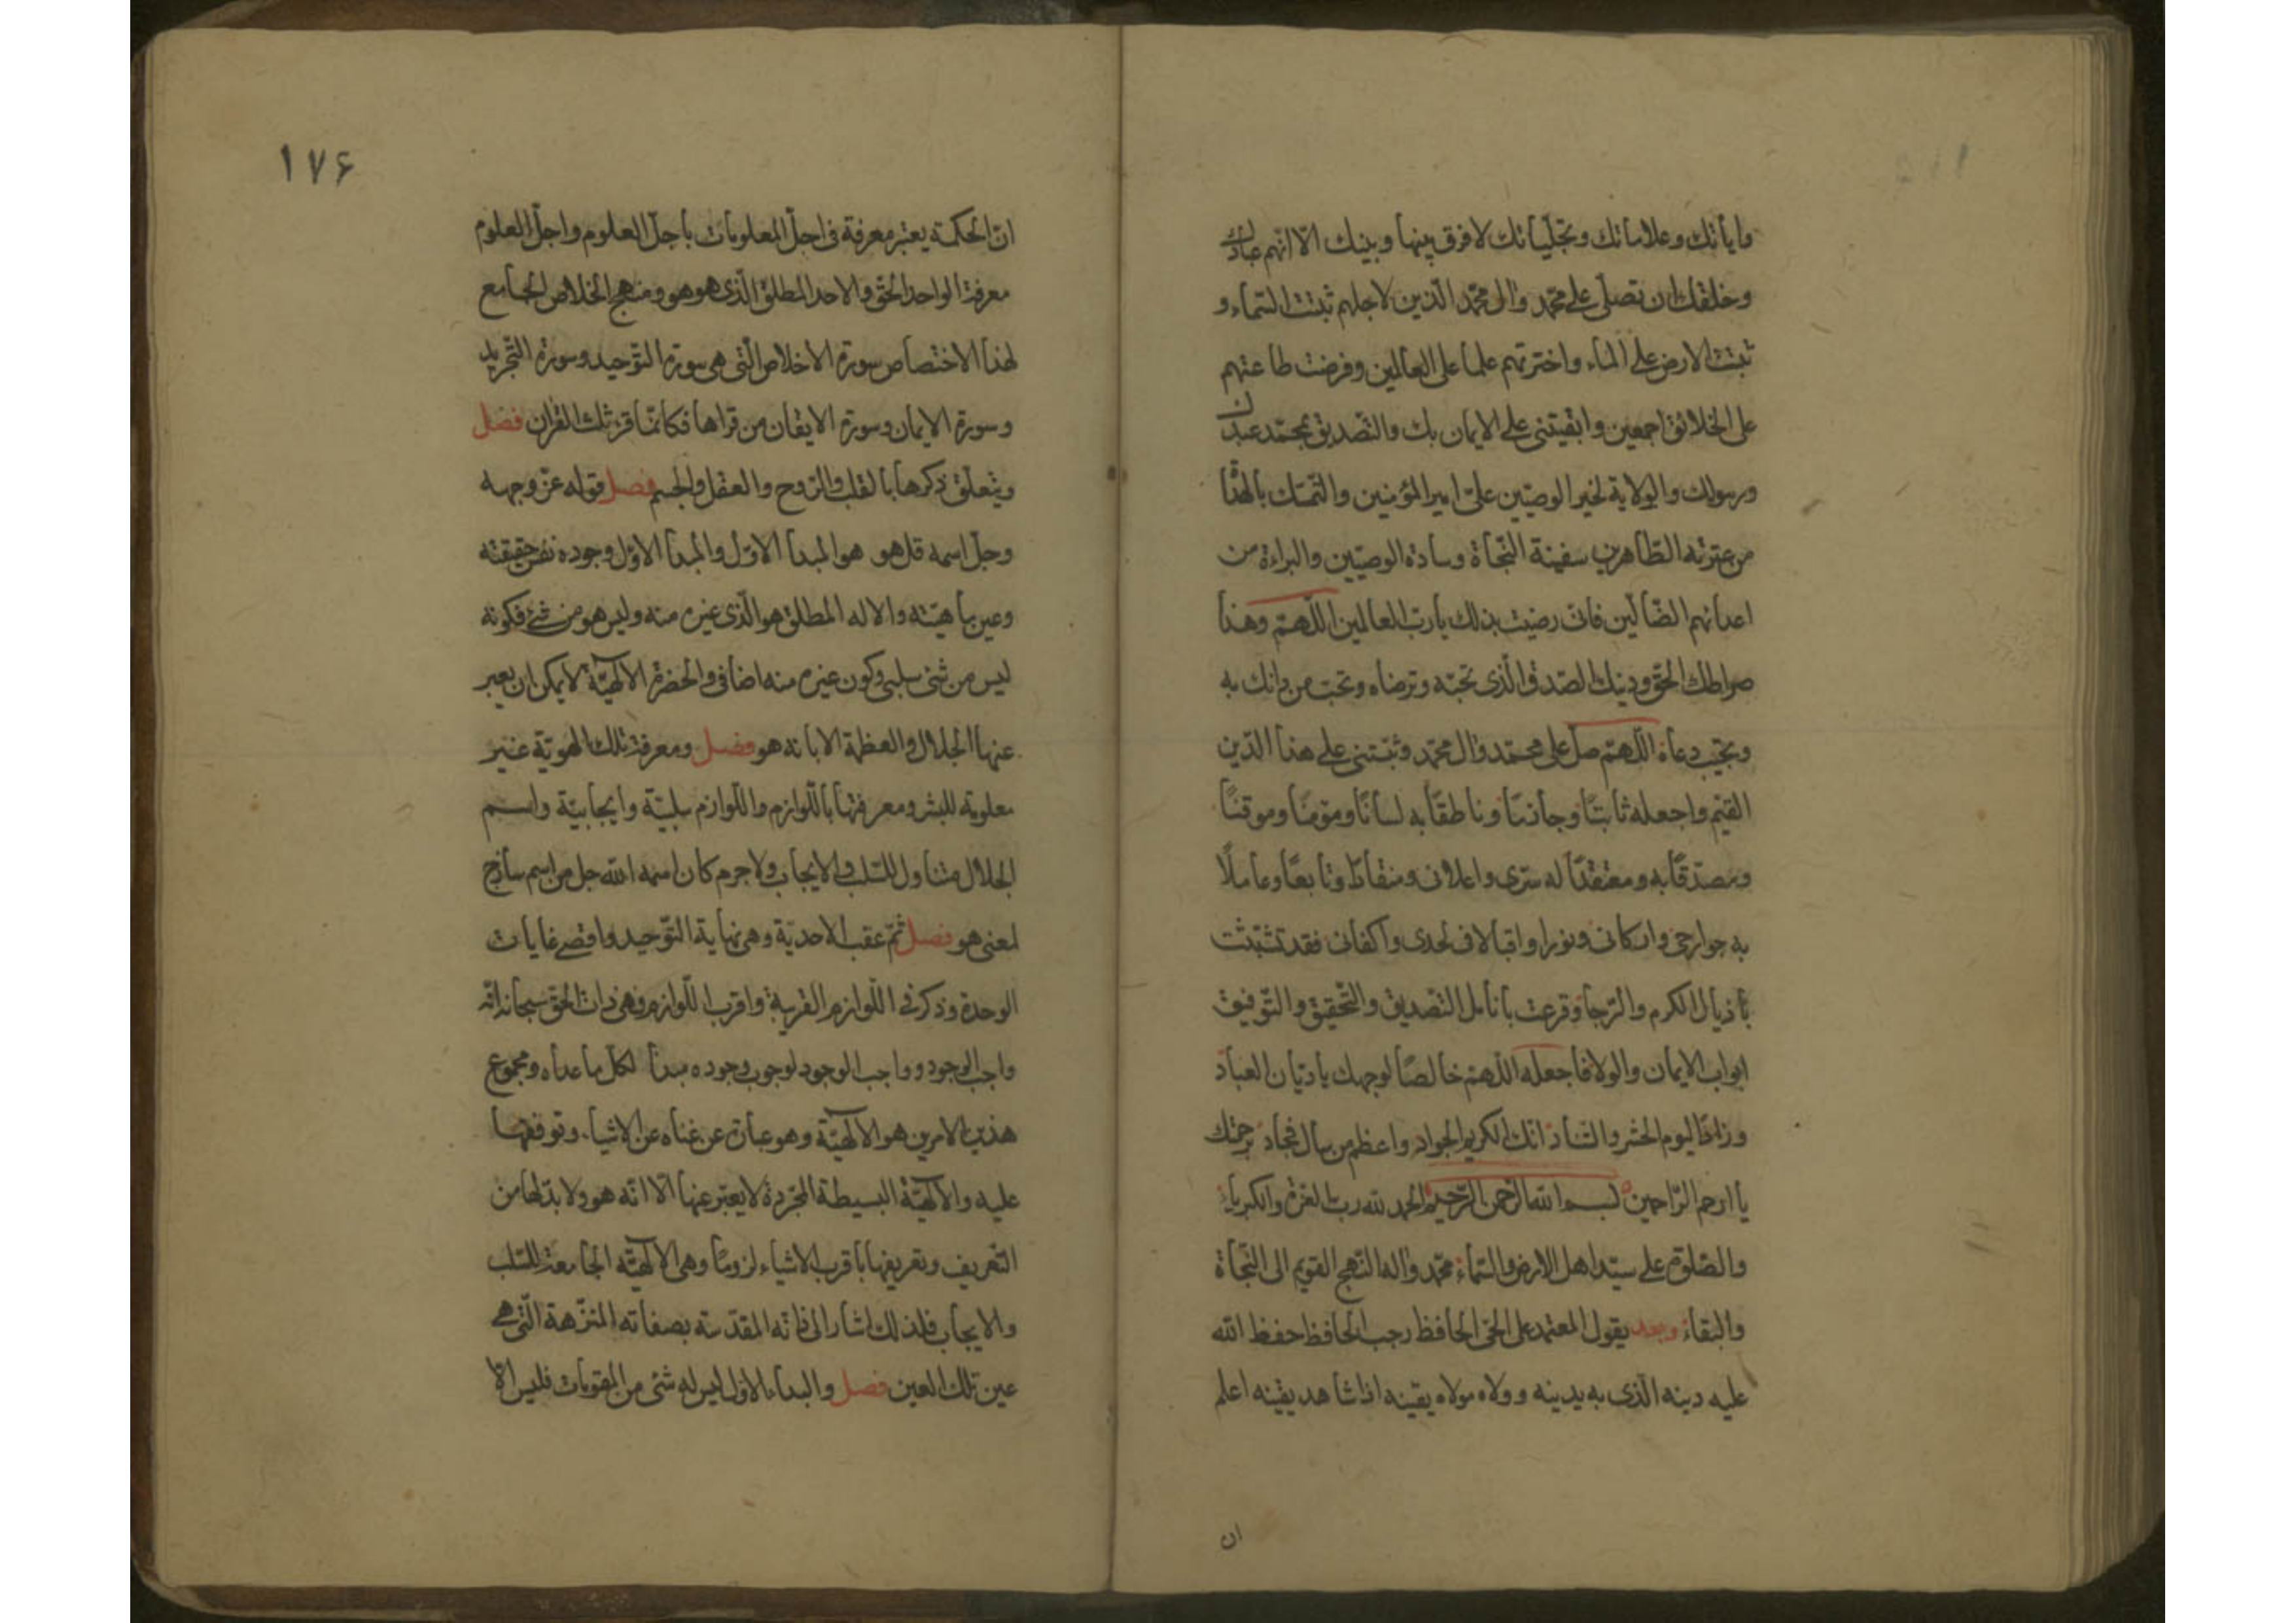 واياتك وعلاماتك وتجلياتك لا فرق بينها وبينك الا انهم عبادك
وخلقك ان تصلّى على محمّد وال محمّد الّذين لاجلهم ثبتت السّماء و
ثبتت الارض على الماء واخترتهم علما على العالمين وفرضت طاعتهم
على الخلائق اجمعين وابقيتنى على الايمان بك والتّصديق بمحمّد عبدك
ورسولك والولاية لخير الوصيّين علىّ امير المؤمنين والتّمسّك بالهداة
من عترته الطّاهرين سفينة النّجاة وسادة الوصيّين والبراءة من
اعدائهم الضّالّين فانى رضيت بذلك يا ربّ العالمين اللّهمّ وهذا
صراطك الحقّ ودينك الصّدق الّذى تحبّه وترضاه وتحبّ من دانك به
وتجيب دعاءه اللّهمّ صلّ على محمّد وال محمّد وثبّتنى على هذا الدّين
القيّم واجعله ثابتًا وجازمًا وناطقًا به لسانًا ومؤمنًا وموقنًا
ومصدّقًا به ومعتقدًا له سرّى واعلانى ومنقادًا وتابعًا وعاملًا
به جوارحى واركانى ونورا واقبالا فى لحدى واكفانى فقد تشبّثت
باذيال الكرم والرّجاء وقرعت بانامل التّصديق والتّحقيق والتّوفيق
ابواب الايمان والولا فاجعله اللّهمّ خالصًا لوجهك يا ديّان العباد
وزادًا ليوم الحشر والتّناد انك الكريم الجواد واعظم من سال فجاد برحمتك
يا ارحم الرّاحمين بسم الله الرّحمن الرّحيم الحمد لله ربّ العزة والكبرياء
والصّلوة على سيّد اهل الارض والسّماء محمّد واله النّهج القويم الى النّجاة
والبقاء وبعد يقول المعتمد على الحىّ الحافظ رجب الحافظ حفظ الله
عليه دينه الّذى به يدينه وولاه مولاه يقينه اذا شاهد يقينه اعلم
ان
١٧۶
انّ الحكمة يعتبر معرفة فى اجلّ المعلومات باجلّ العلوم واجلّ العلوم
معرفة الواحد الحقّ والاحد المطلق الّذى هو هو ومنهج الخلاص الجامع
لهذا الاختصاص سورة الاخلاص الّتى هى سورة التّوحيد وسورة التّجريد
وسورة الايمان وسورة الايقان من قراها فكانّما قرء ثلث القران فصل
ويتعلّق ذكرها بالقلب والرّوح والعقل والجسم فصل قوله عزّ وجهه
وجلّ اسمه قل هو هو المبدا الاوّل والمبدا الاوّل وجوده نفس حقيقته
وعين ماهيّته والاله المطلق هو الّذى غيره منه وليس هو من شىء فكونه
ليس من شئ سلبى وكون غيره منه اضافى والحضرة الالهيّة لا يمكن ان يعبر
عنها الجلال والعظمة الا بانه هو فصل ومعرفة تلك الهويّة غير
معلومة للبشر ومعرفتها باللّوازم واللّوازم سلبيّة وايجابيّة واسم
الجلال متناول للسّلب والايجاب ولا جرم كان اسمه الله جل من اسم ساذج
لمعنى هو فصل ثمّ عقب الاحديّة وهى نهاية التّوحيد واقصى غايات
الوحدة وذكر فى اللّوازم القريبة واقرب اللّوازم فهى ذات الحقّ سبحانه انّه
واجب الوجود وواجب الوجود لوجوب وجوده مبدا لكلّ ما عداه ومجموع
هذين الامرين هو الالهيّة وهو عبارة عن غناه عن الاشياء وتوقفها
عليه والالهيّة البسيطة المجرّدة لا يعبّر عنها الّا انّه هو ولا بدّ لها من
التّعريف وتعريفها باقرب الاشياء لزومًا وهى الالهيّة الجامعة للسّلب
والايجاب فلذلك اشار الى ذاته المقدّسة بصفاته المنزّهة الّتى هى
عين تلك العين فصل والبداء الاوّل ليس له شئ من المقومات فليس الا